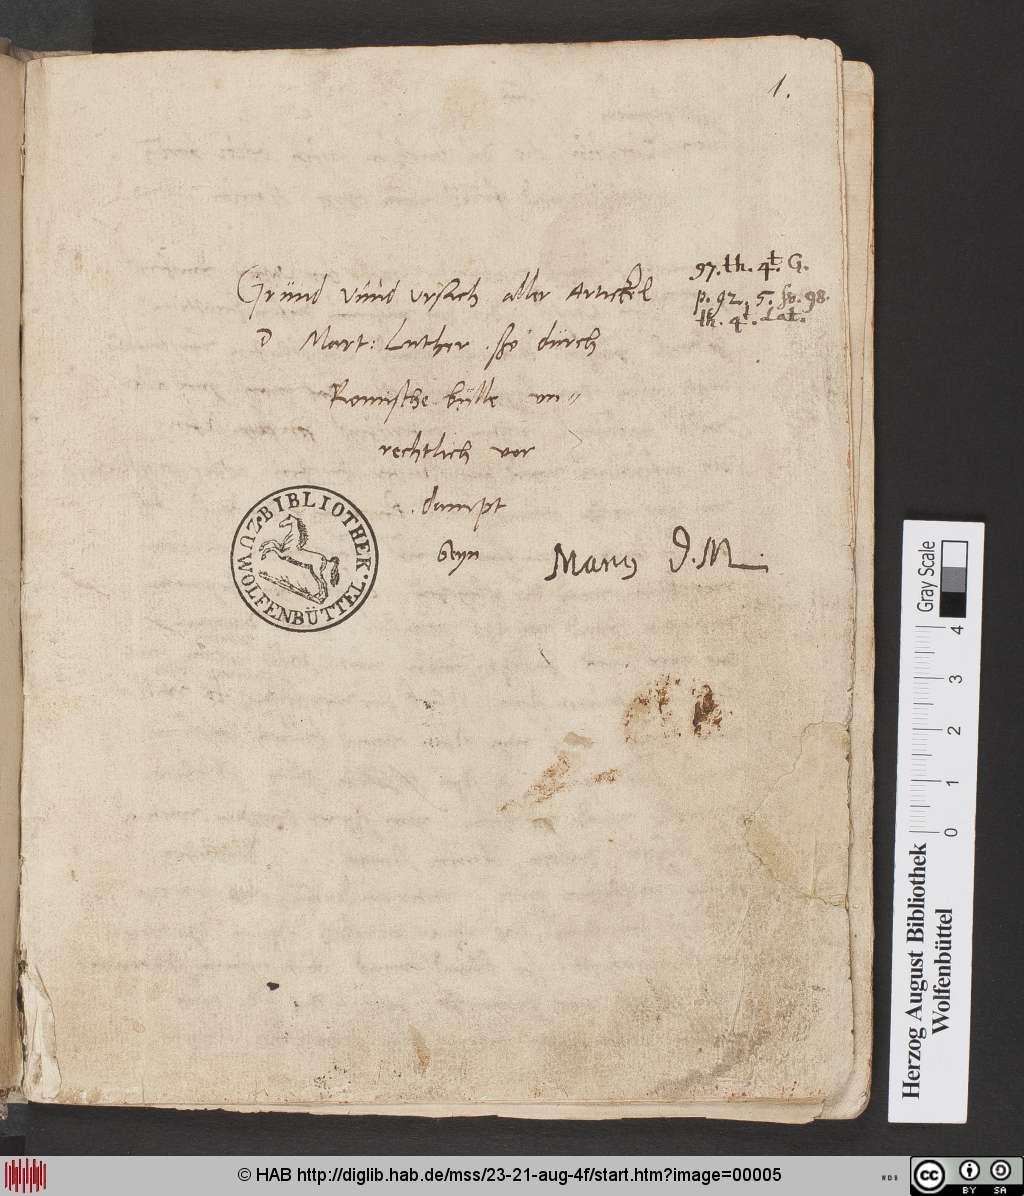 1.
Gründ vnnd vrsach aller Artickel
D Mart: Luther ßo dürch
Romische bülle vn=
rechtlich vor
dampt
seyn
97. th. 4t. G.
p. 92, 5.
98.
th. 4t. dat.
Manus D. M.
BIBLIOTHEK · WOLFENBÜTTEL · ZU
Gray Scale
0 1 2 3 4
Herzog August Bibliothek
Wolfenbüttel
© HAB http://diglib.hab.de/mss/23-21-aug-4f/start.htm?image=00005
WDB
cc BY SA